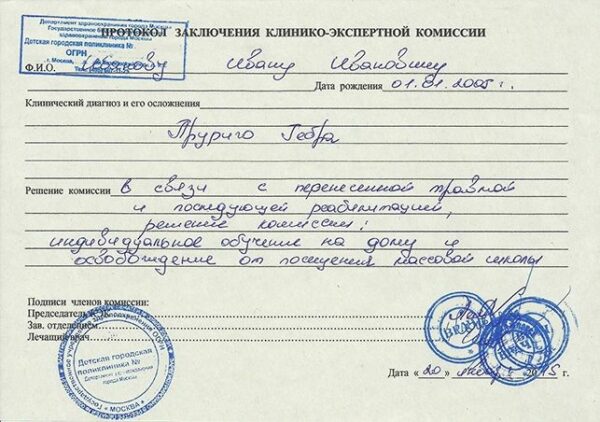 ПРОТОКОЛ ЗАКЛЮЧЕНИЯ КЛИНИКО-ЭКСПЕРТНОЙ КОМИССИИ
Департамент здравоохранения города Москвы
Государственное
здравоохранения города Москвы
Детская городская поликлиника №
ОГРН
г. Москва,
Ф.И.О. Иванову Ивану Ивановичу
Дата рождения 01.01.2005 г.
Клинический диагноз и его осложнения
Решение комиссии в связи с перенесенной травмой
и последующей реабилитацией,
решение комиссии:
индивидуальное обучение на дому и
освобождение от посещения массовой школы
Подписи членов комиссии:
Председатель
Зав. отделением
Лечащий врач
Детская городская
поликлиника №
города Москвы
* МОСКВА *
Дата «20» 2015 г.